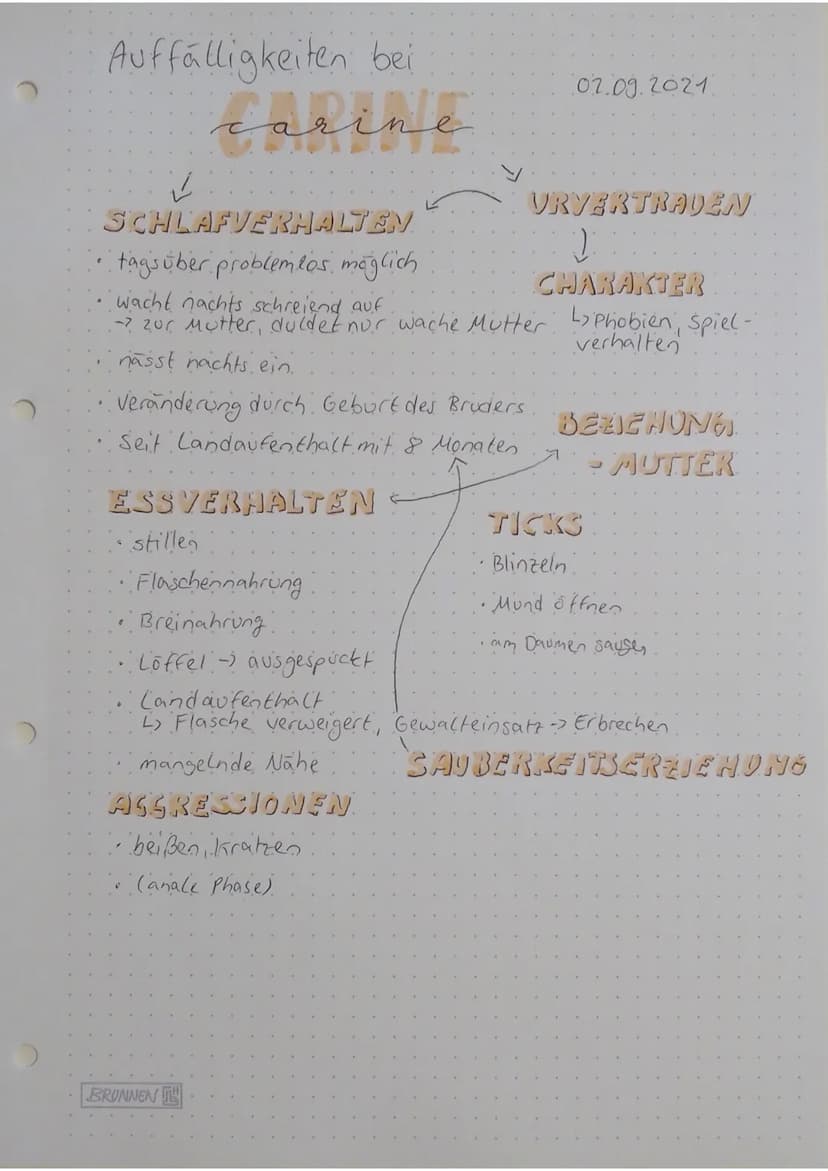 Auffälligkeiten bei
02.09.2021
CARINE
carine
SCHLAFVERHALTEN
URVERTRAUEN
• tagsüber problemlos möglich
CHARAKTER
• wacht nachts schreiend auf
→ zur Mutter, duldet nur wache Mutter
↳ Phobien, Spiel-
verhalten
• nässt nachts ein
• Veränderung durch Geburt des Bruders
• Seit Landaufenthalt mit 8 Monaten
BEZIEHUNG
- MUTTER
ESSVERHALTEN
TICKS
• stillen
• Blinzeln
• Flaschennahrung
• Mund öffnen
• Breinahrung
• am Daumen saugen
• Löffel → ausgespuckt
• Landaufenthalt
↳ Flasche verweigert, Gewalteinsatz → Erbrechen
• mangelnde Nähe
SAUBERKEITSERZIEHUNG
AGGRESSIONEN
• beißen, kratzen
• (anale Phase)
BRUNNEN